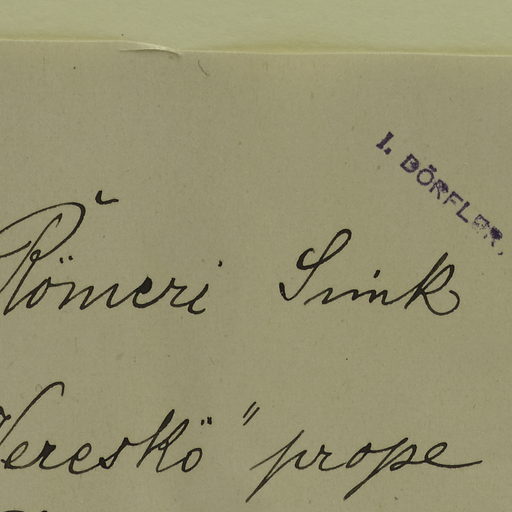 I. DÖRFLER.
Römeri Simk
Vereskö" prope